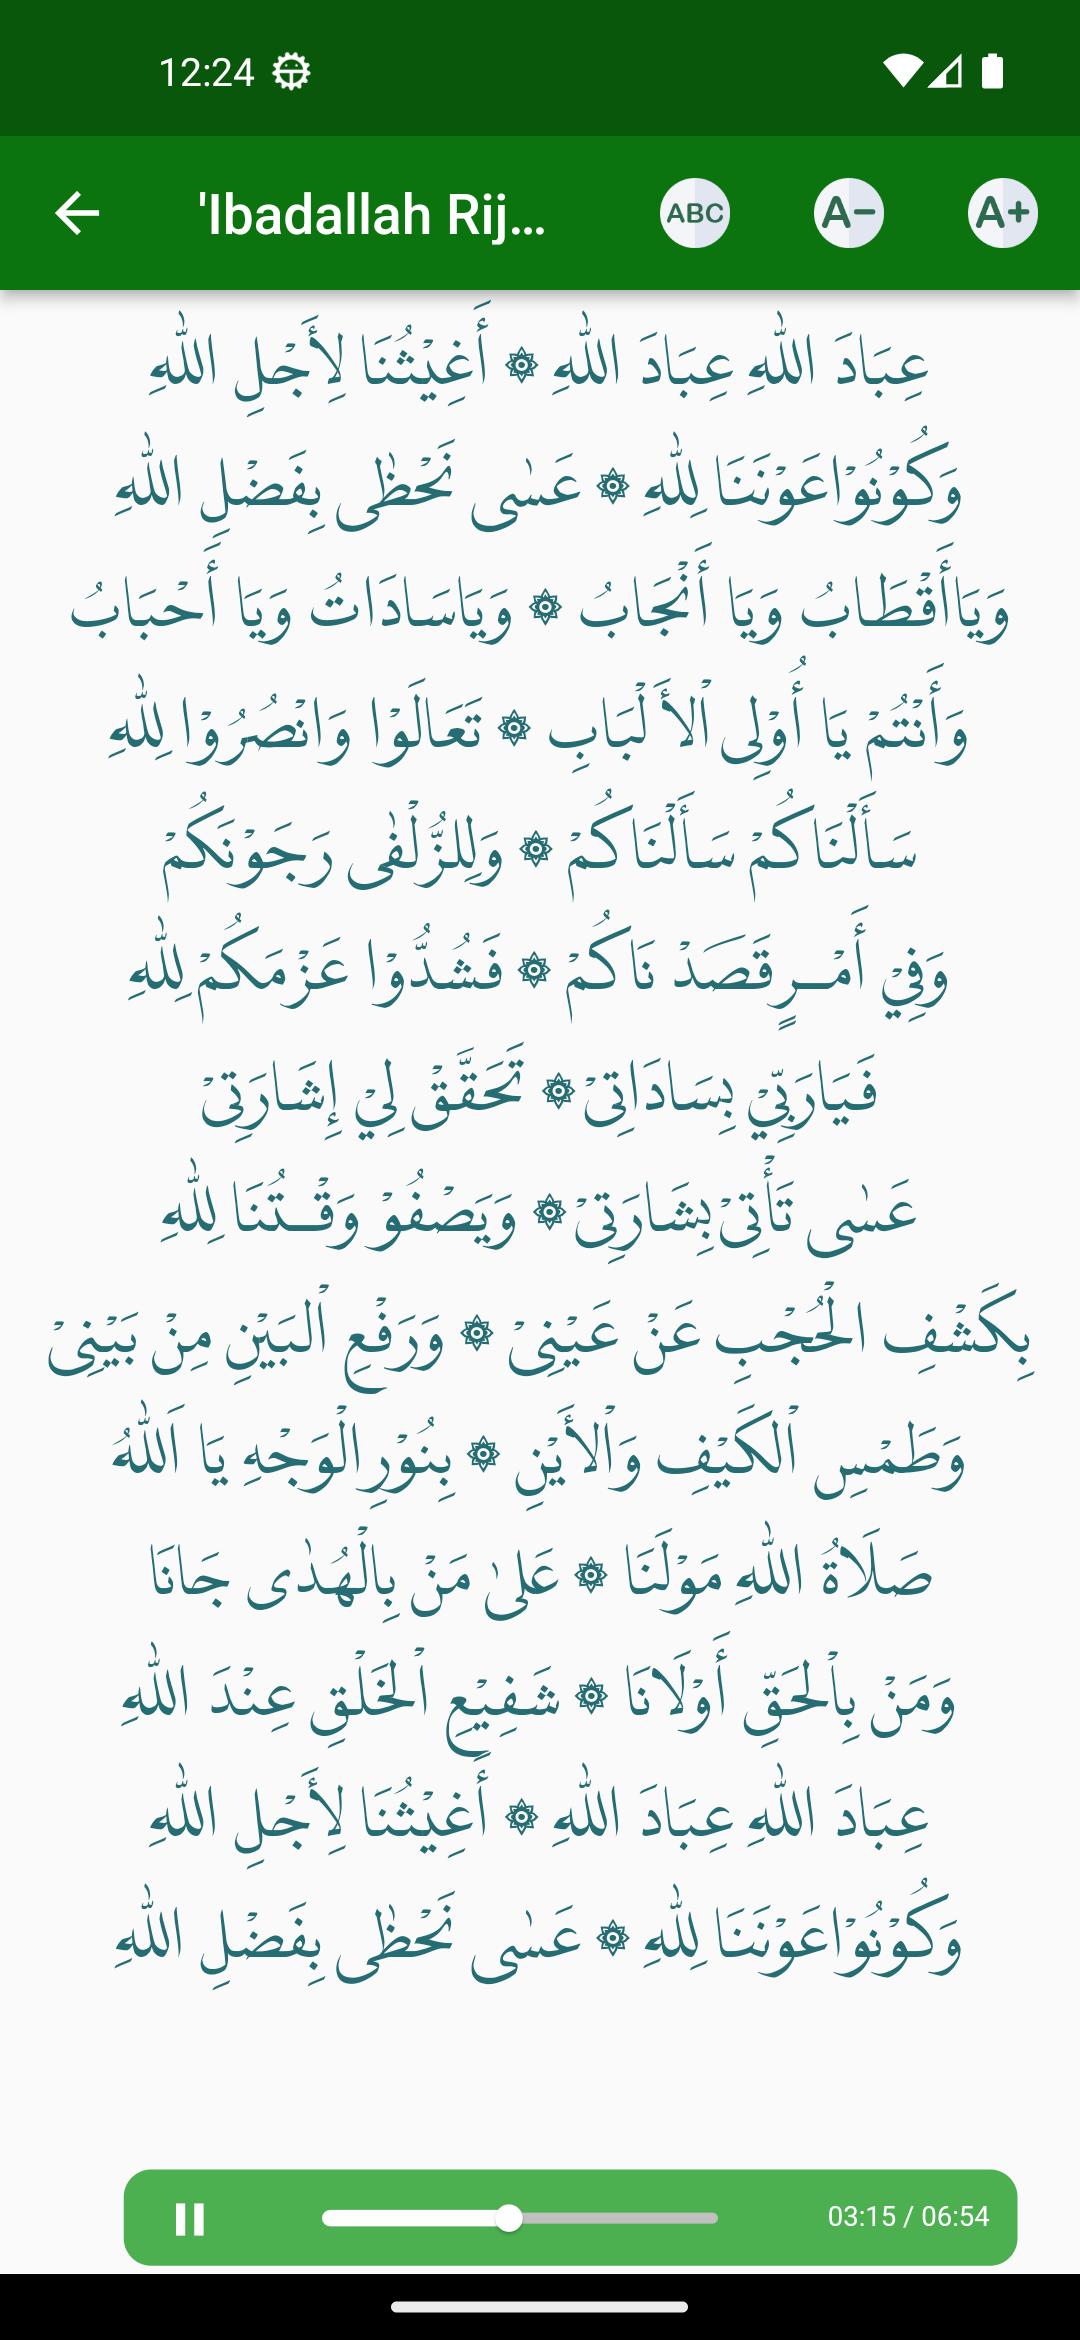 12:24
'Ibadallah Rij...
ABC
A-
A+
عِبَادَ اللهِ عِبَادَ اللهِ ۞ أَغِيْثُنَا لِأَجْلِ اللهِ
وَكُوْنُوْاعَوْنَنَا لِلهِ ۞ عَسٰى نَحْظٰى بِفَضْلِ اللهِ
وَيَاأَقْطَابُ وَيَا أَنْجَابُ ۞ وَيَاسَادَاتُ وَيَا أَحْبَابُ
وَأَنْتُمْ يَا أُوْلِى ْالأَ لْبَابِ ۞ تَعَالَوْا وَانْصُرُوْا لِلهِ
سَأَلْنَاكُمْ سَأَلْنَاكُمْ ۞ وَلِلزُّلْفٰى رَجَوْنَكُمْ
وَفِيْ أَمْــرٍقَصَدْ نَاكُمْ ۞ فَشُدُّوْا عَزْمَكُمْ لِلهِ
فَيَارَبِّيْ بِسَادَاتِىْ ۞ تَحَقَّقْ لِيْ إِشَارَتِىْ
عَسٰى تَأْتِىْ بِشَارَتِىْ ۞ وَيَصْفُوْ وَقْــتُنَا لِلهِ
بِكَشْفِ الْحُجْبِ عَنْ عَيْنِىْ ۞ وَرَفْعِ ْالبَيْنِ مِنْ بَيْنِىْ
وَطَمْسِ ْالكَيْفِ وَْالأَيْنِ ۞ بِنُوْرِالْوَجْهِ يَا اَللهُ
صَلَاةُ اللهِ مَوْلَنَا ۞ عَلىٰ مَنْ بِالْهُدٰى جَانَا
وَمَنْ بِاْلحَقِّ أَوْلَانَا ۞ شَفِيْعِ ْالخَلْقِ عِنْدَ اللهِ
عِبَادَ اللهِ عِبَادَ اللهِ ۞ أَغِيْثُنَا لِأَجْلِ اللهِ
وَكُوْنُوْاعَوْنَنَا لِلهِ ۞ عَسٰى نَحْظٰى بِفَضْلِ اللهِ
03:15 / 06:54